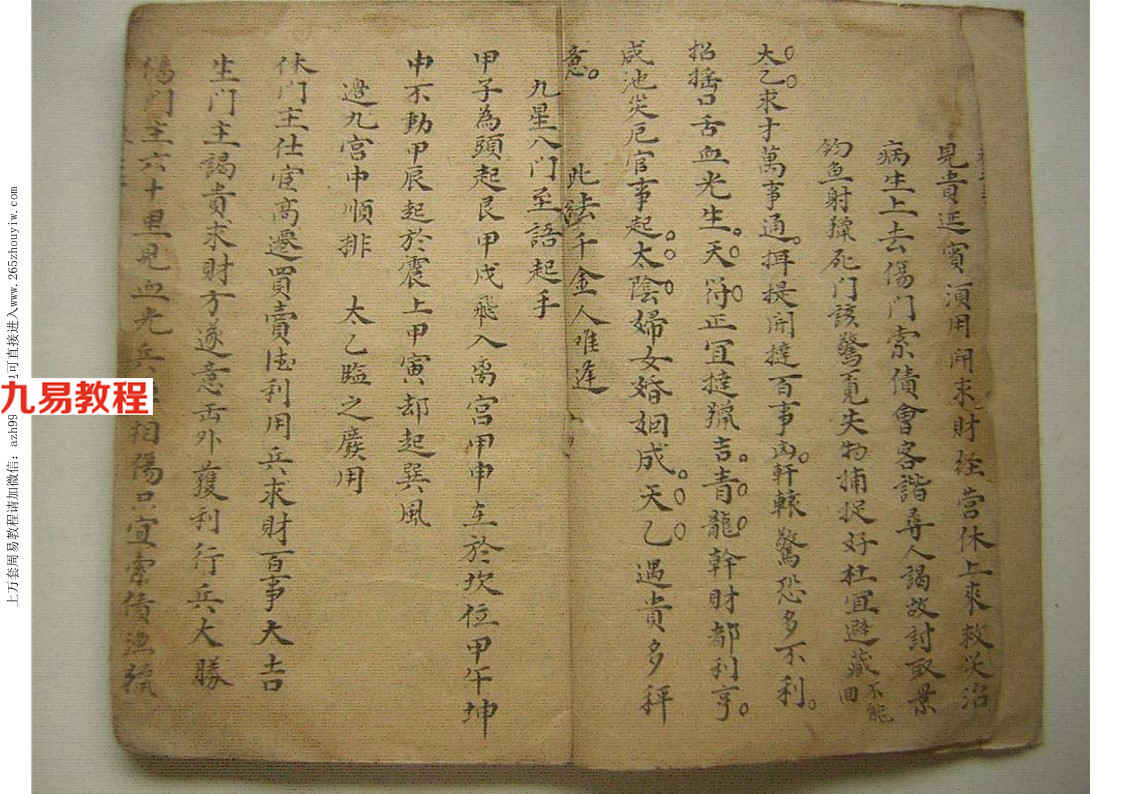 見貴迎賓須用開求財經营休上來救災治
病生上去傷門索債會客諧尋人謁故討取業
釣魚射獵死门該驚覓失物捕捉好杜宜避藏回不能
太乙求才萬事通。摂提開撻百事凶。軒轅驚恐多不利。
招搖口舌血光生。天符正宜撻猟吉。青龍幹財都利亨。
咸池災厄官事起。太陰婦女婚姻成。天乙遇貴多秤
意。 此法千金人唯逢
九星八門至語起手
甲子為頭起艮甲戌飛入离宮甲申立於坎位甲午坤
中不動甲辰起於震上甲寅却起巽風
遊九宫中順排 太乙臨之廢用
休门主仕宦高遷買賣德利用兵求財百事大吉
生门主謁貴求財方遂意出外獲利行兵大勝
傷门主六十里見血光兵 相傷只宜索債漁猟
九易教程
上万套周易教程请加微信：azh99 也可直接进入www.265zhouyiw.com